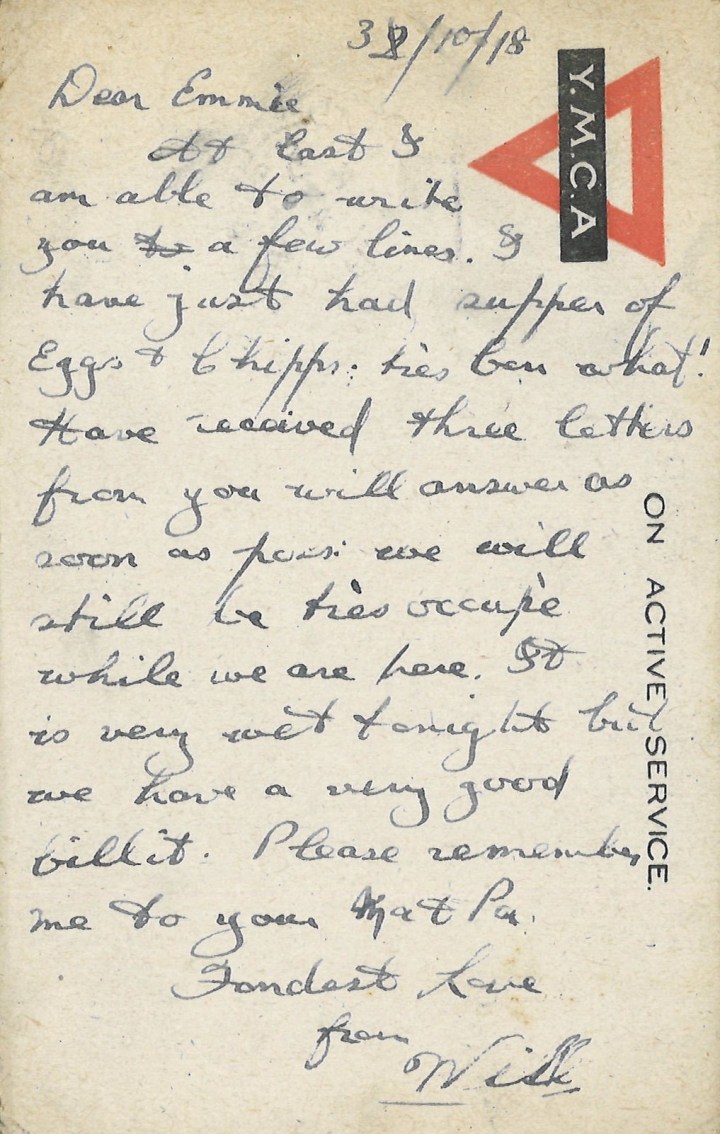 3/10/18
Dear Emmie
At Last I
am able to write
you to a few lines. I
have just had supper of
Eggs & Chipps. très bon what!
Have received three letters
from you will answer as
soon as poss: we will
still be très occupie
while we are here. It
is very wet tonight but
we have a very good
billit. Please remember
me to your Ma & Pa.
Fondest Love
from
Will
Y.M.C.A
ON ACTIVE SERVICE.